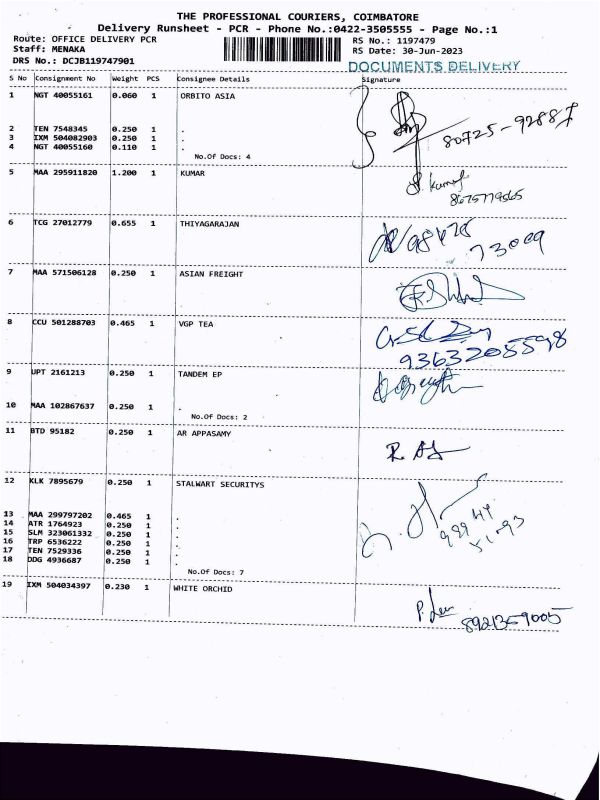 THE PROFESSIONAL COURIERS, COIMBATORE
Delivery Runsheet - PCR - Phone No.:0422-3505555 - Page No.:1
Route: OFFICE DELIVERY PCR RS No.: 1197479
Staff: MENAKA RS Date: 30-Jun-2023
DRS No.: DCJB119747901 DOCUMENTS DELIVERY
S No Consignment No Weight PCS Consignee Details Signature
1 NGT 40055161 0.060 1 ORBITO ASIA
80725-92887
2 TEN 7548345 0.250 1 .
3 IXM 504082903 0.250 1 .
4 NGT 40055160 0.110 1 .
No.Of Docs: 4
5 MAA 295911820 1.200 1 KUMAR
8675779565
6 TCG 27012779 0.655 1 THIYAGARAJAN
73009
7 MAA 571506128 0.250 1 ASIAN FREIGHT
8 CCU 501288703 0.465 1 VGP TEA
9363205598
9 UPT 2161213 0.250 1 TANDEM EP
10 MAA 102867637 0.250 1 .
No.Of Docs: 2
11 BTD 95182 0.250 1 AR APPASAMY
12 KLK 7895679 0.250 1 STALWART SECURITYS
13 MAA 299797202 0.465 1 .
14 ATR 1764923 0.250 1 .
15 SLM 323061332 0.250 1 .
16 TRP 6536222 0.250 1 .
17 TEN 7529336 0.250 1 .
18 DDG 4936687 0.250 1 .
No.Of Docs: 7
19 IXM 504034397 0.230 1 WHITE ORCHID
8921359005